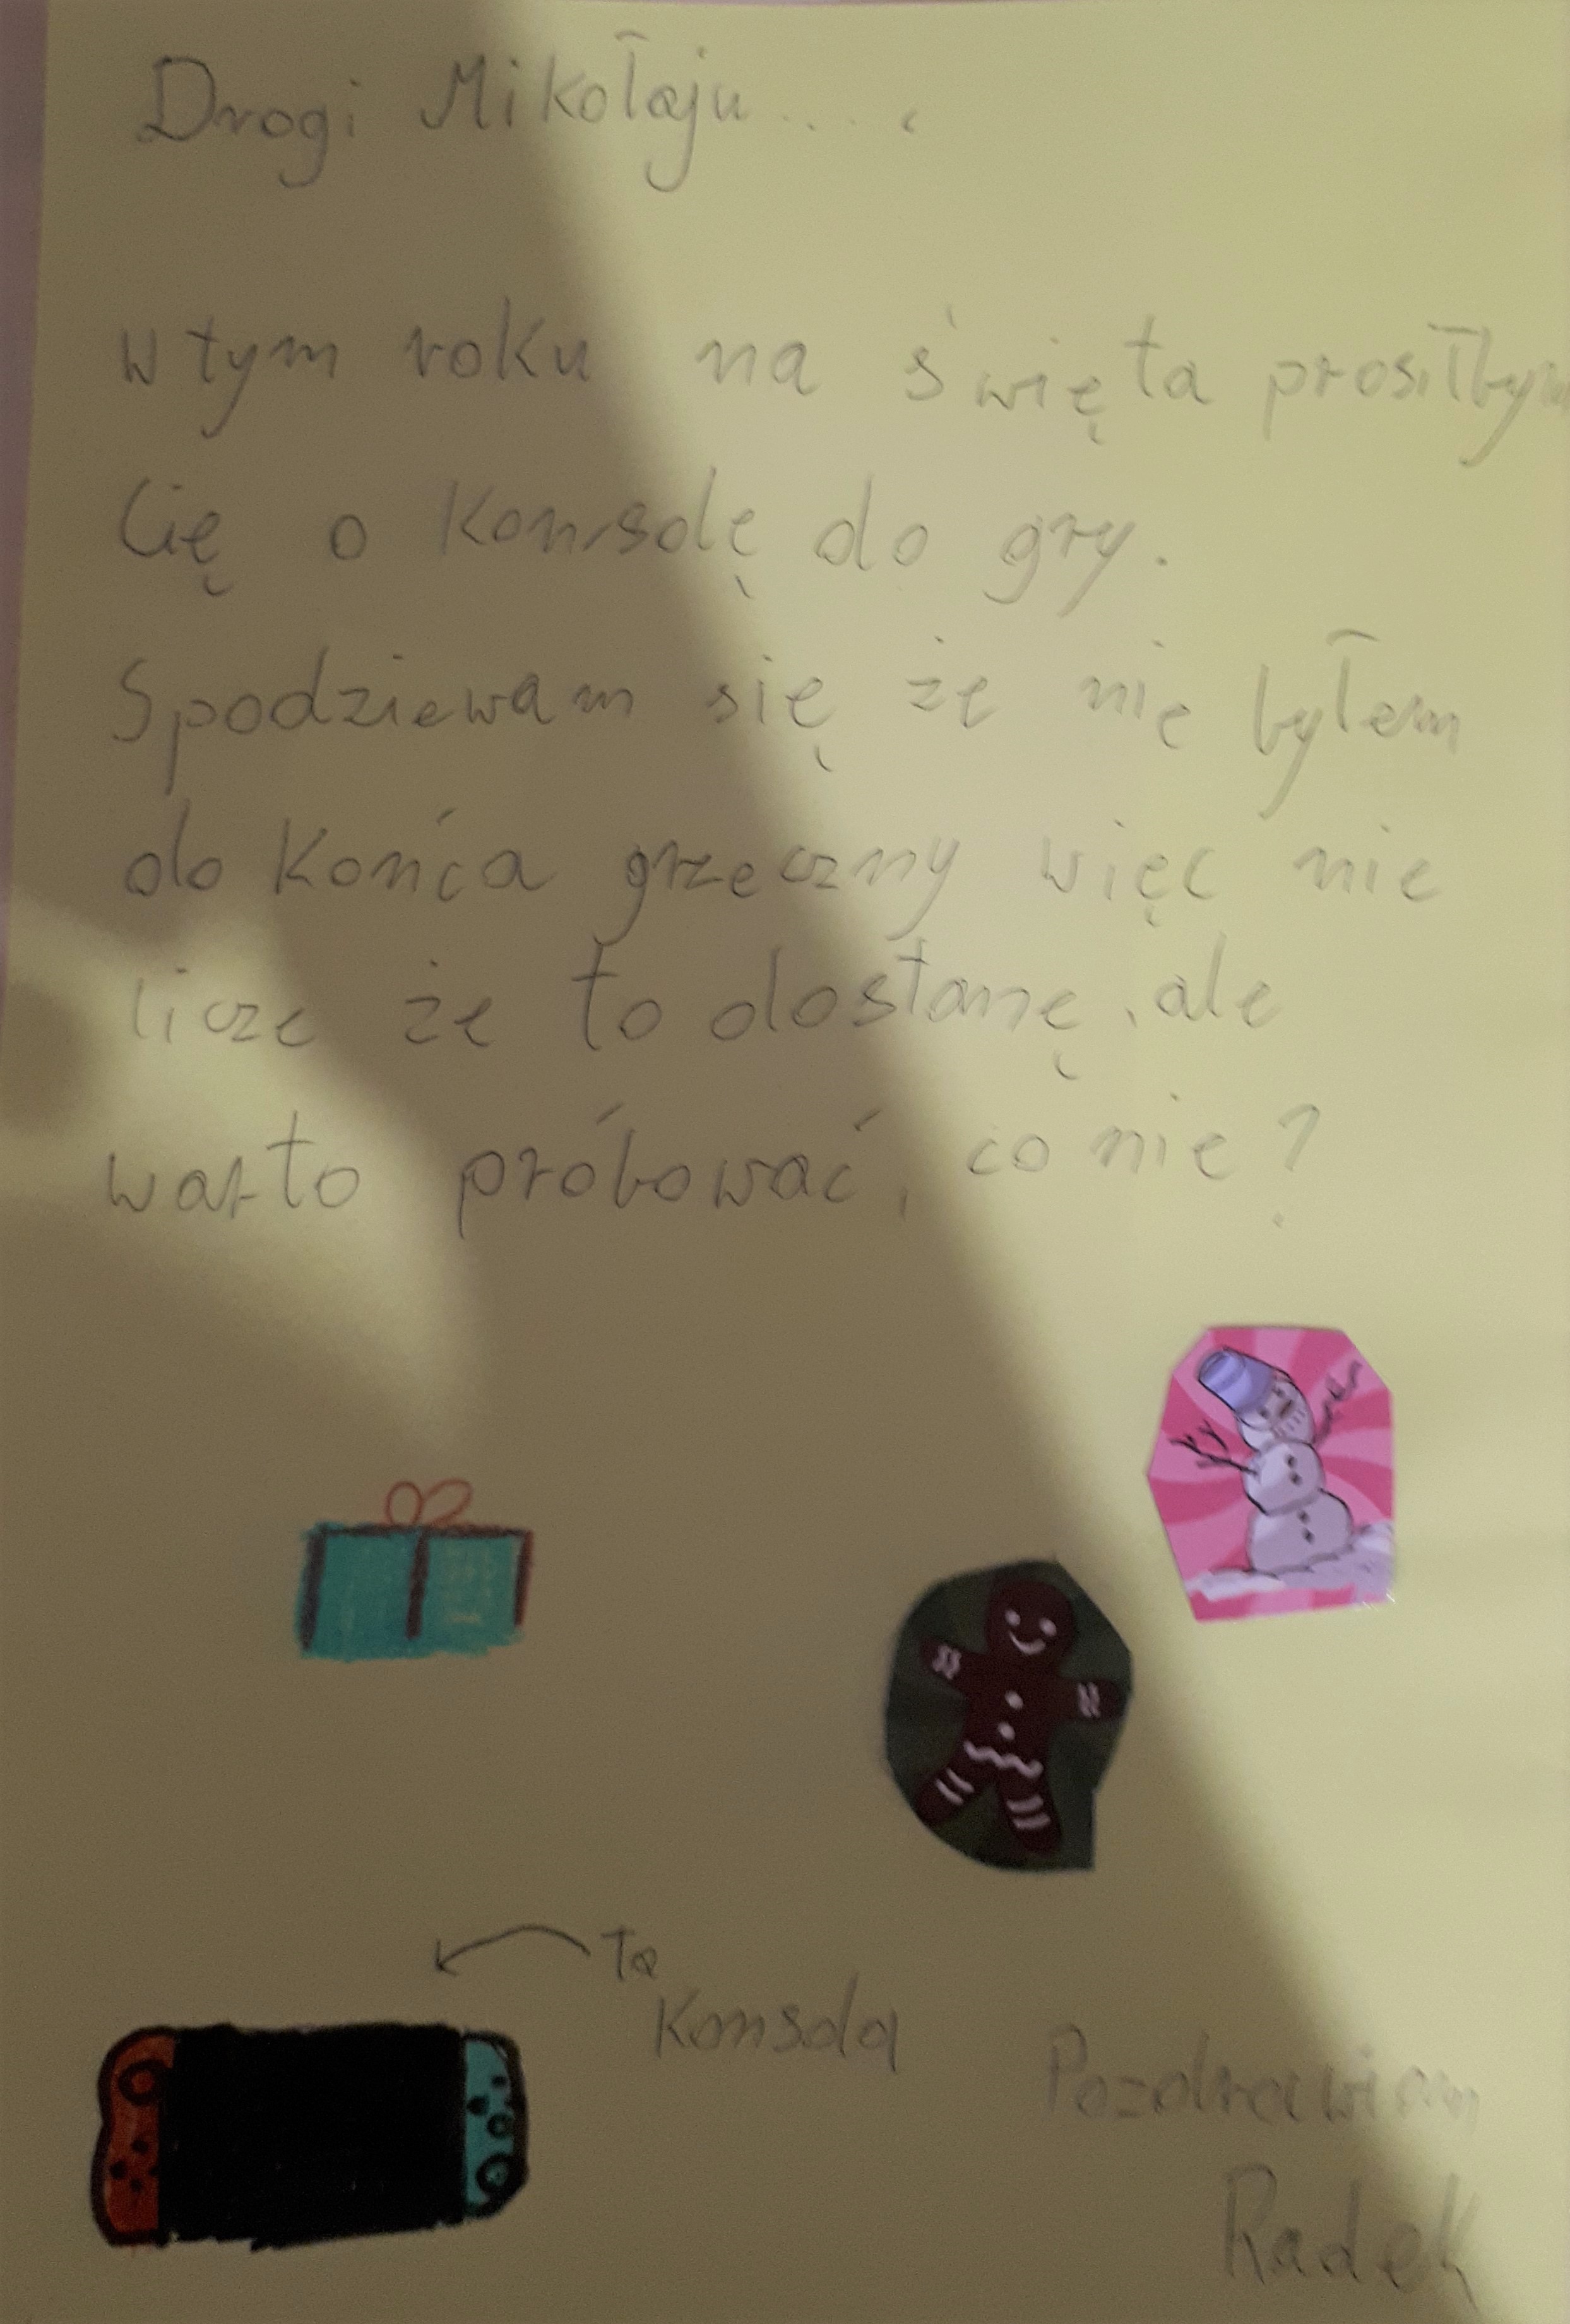 Drogi Mikołaju....
w tym roku na święta prosiłbym
Cię o Konsolę do gry.
Spodziewam się że nie byłem
do Końca grzeczny więc nie
licze że to dostanę, ale
warto próbować, co nie?
Ta
Konsola
Pozdrawiam
Radek